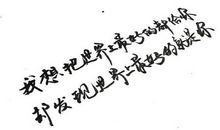 我想把世界上最好的都给你
却发现世上最好的就是你